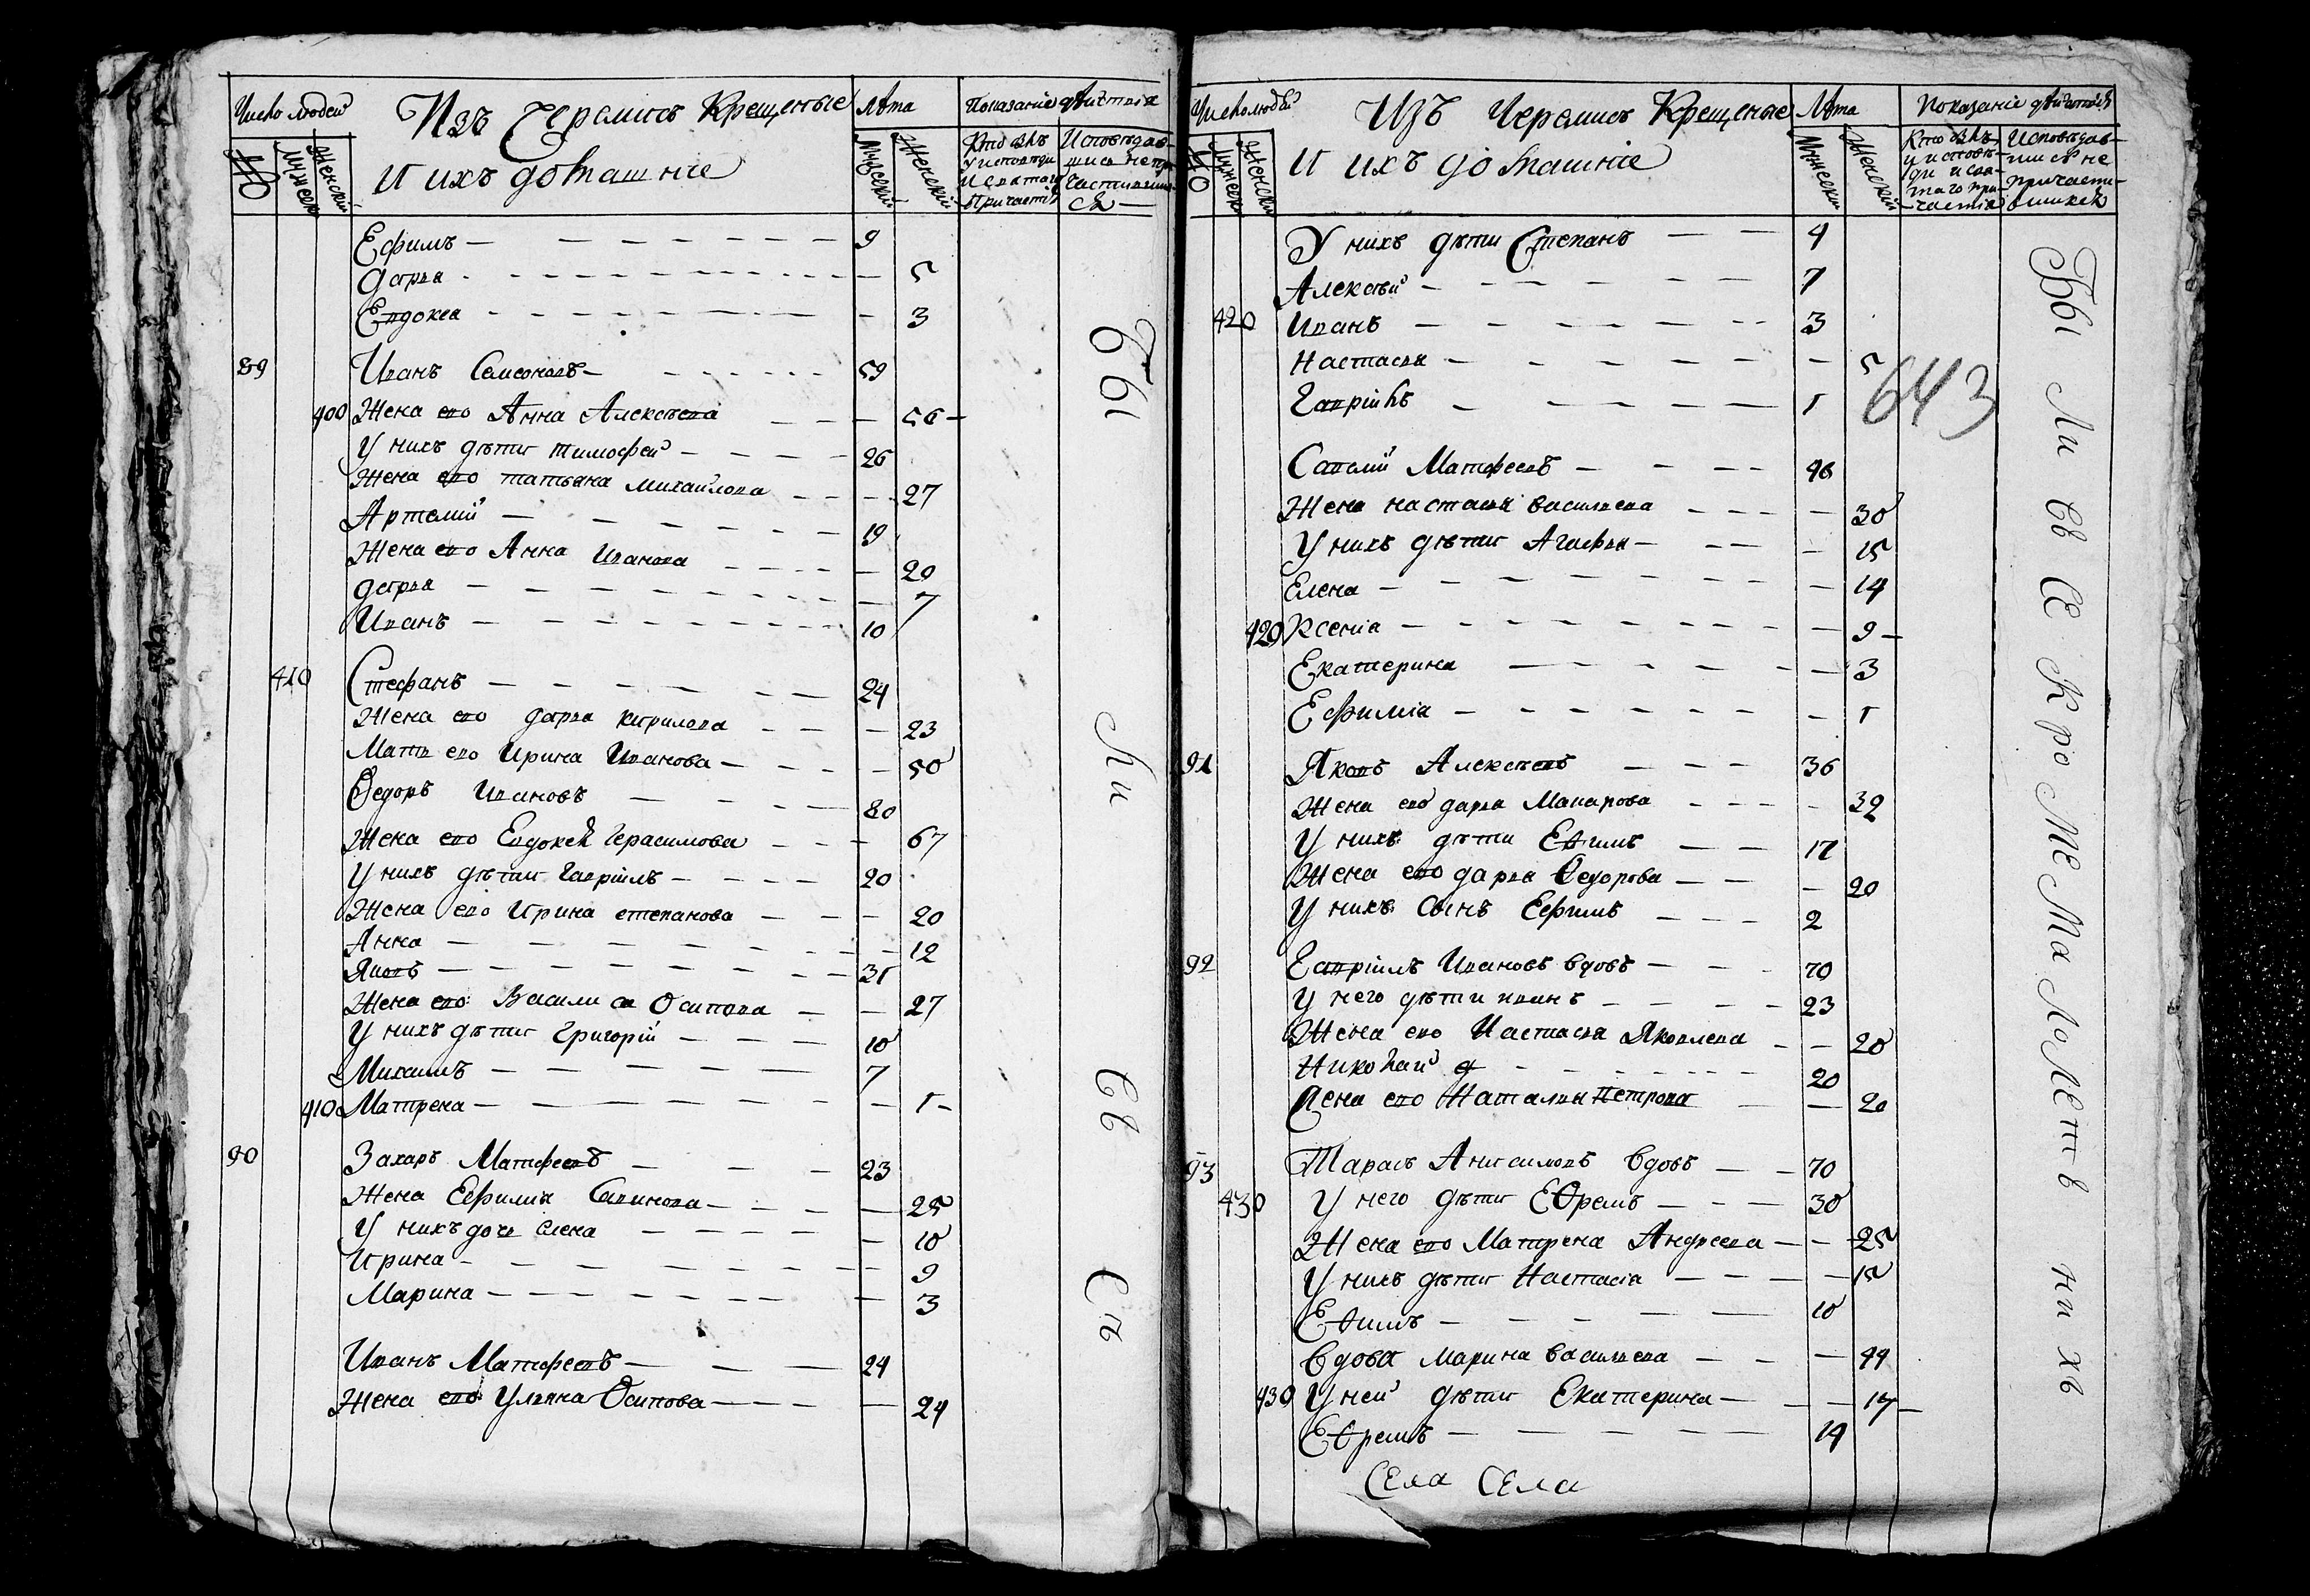 Число людей Изъ Черемисъ Крещеные Лѣта Показаніе дѣйствія
И ихъ домашніе
№ Мужеск Женскій Мужескій Женскій
Кто былъ у исповѣди и святаго причастія
Исповѣдавшись не причастившися
Ефимъ 9
Дарья 5
Евдокея 3
89 Иванъ Самсоновъ 59
400 Жена его Анна Алексѣева 56
У нихъ дѣти Тимофей 26
Жена его татьяна Михаилова 27
Артемій 19
Жена его Анна Иванова 20
Дарья 7
Иванъ 10
410 Стефанъ 24
Жена его дарья кирилова 23
Мать его Ирина Иванова 50
Ѳедоръ Ивановъ 80
Жена его Евдокея Герасимова 67
У нихъ дѣти Гавріилъ 20
Жена его Ирина степанова 20
Анна 12
Яковъ 31
Жена его Василиса Осипова 27
У нихъ дѣти Григорій 10
Михаилъ 7
410 Матрена 1
90 Захаръ Матфеевъ 23
Жена Ефимія Савинова 25
У нихъ дочь Елена 10
Ирина 9
Марина 3
Иванъ Матфеевъ 24
Жена его Ульяна Осипова 24
Бы
Ли
Св
Съ
Число людей Изъ Черемисъ Крещеные Лѣта Показаніе дѣйствія
И ихъ домашніе
№ Мужеск Женски Мужески Женскій
Кто былъ у исповѣди и святаго причастія
Исповѣдавшись не причастившися
У нихъ дѣти Степанъ 4
Алексѣй 7
420 Иванъ 3
Настасья 5
643
Гавріилъ 1
Савелій Матфеевъ 46
Жена настасья васильева 30
У нихъ дѣти Агафья 15
Елена 14
420 Ксенія 9
Екатерина 3
Ефимія 1
91 Яковъ Алексѣевъ 36
Жена его дарья Макарова 32
У нихъ дѣти Еѳимъ 17
Жена его дарья Ѳедорова 20
У нихъ Сынъ Ефимъ 2
92 Гавріилъ Ивановъ вдовъ 70
У него дѣти иванъ 23
Жена его Настасья Яковлева 20
Николай 20
Жена его Наталья Петрова 20
93 Тарасъ Анисимовъ вдовъ 70
430 У него дѣти Еѳремъ 30
Жена его Матрена Андреева 25
У нихъ дѣти Настасіа 15
Еѳимъ 10
Вдова Марина васильева 44
430 У ней дѣти Екатерина 17
Еѳремъ 14
Села Села
Бы Ли Св Се Кро Ме Ма Ло Лѣт в ни хъ